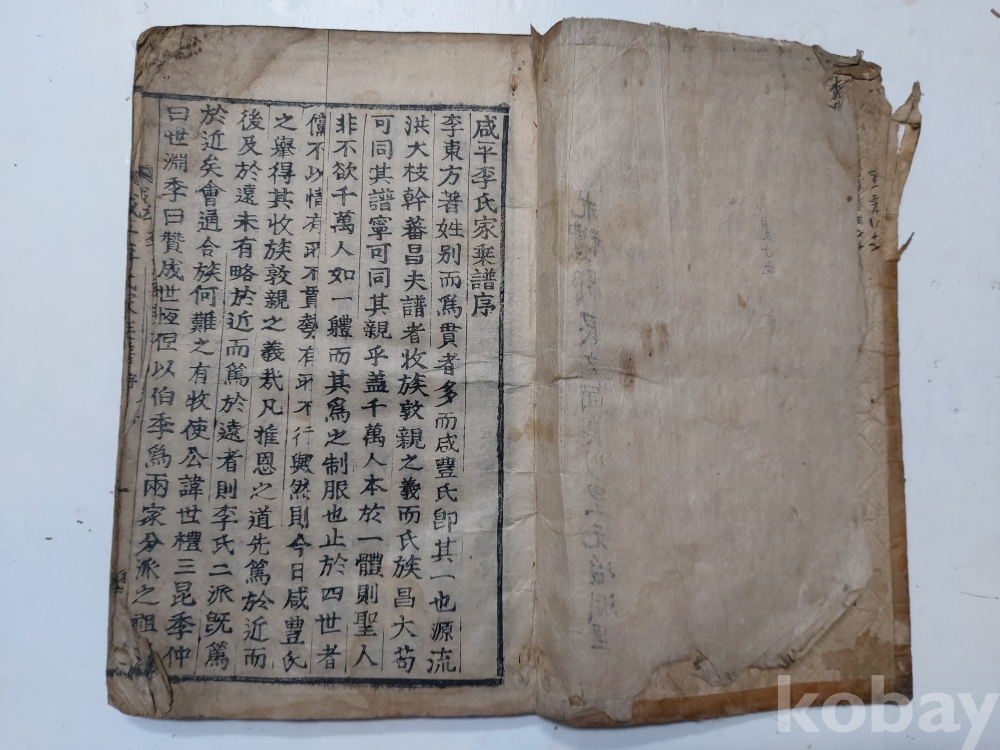 咸平李氏家乘譜序
李東方著姓別而爲貫者多而咸豐氏卽其一也源流
洪大枝幹蕃昌夫譜者收族敦親之義而氏族昌大苟
可同其譜寧可同其親乎盖千萬人本於一體則聖人
非不欲千萬人如一體而其爲之制服也止於四世者
儻不以情有所不貫勢有所不行歟然則今日咸豐氏
之舉得其收族敦親之義哉凡推恩之道先篤於近而
後及於遠未有略於近而篤於遠者則李氏二派旣篤
於近矣會通合族何難之有牧使公諱世禮三昆季仲
曰世淵季曰贊成世恆但以伯季爲兩家分派之祖
kobay